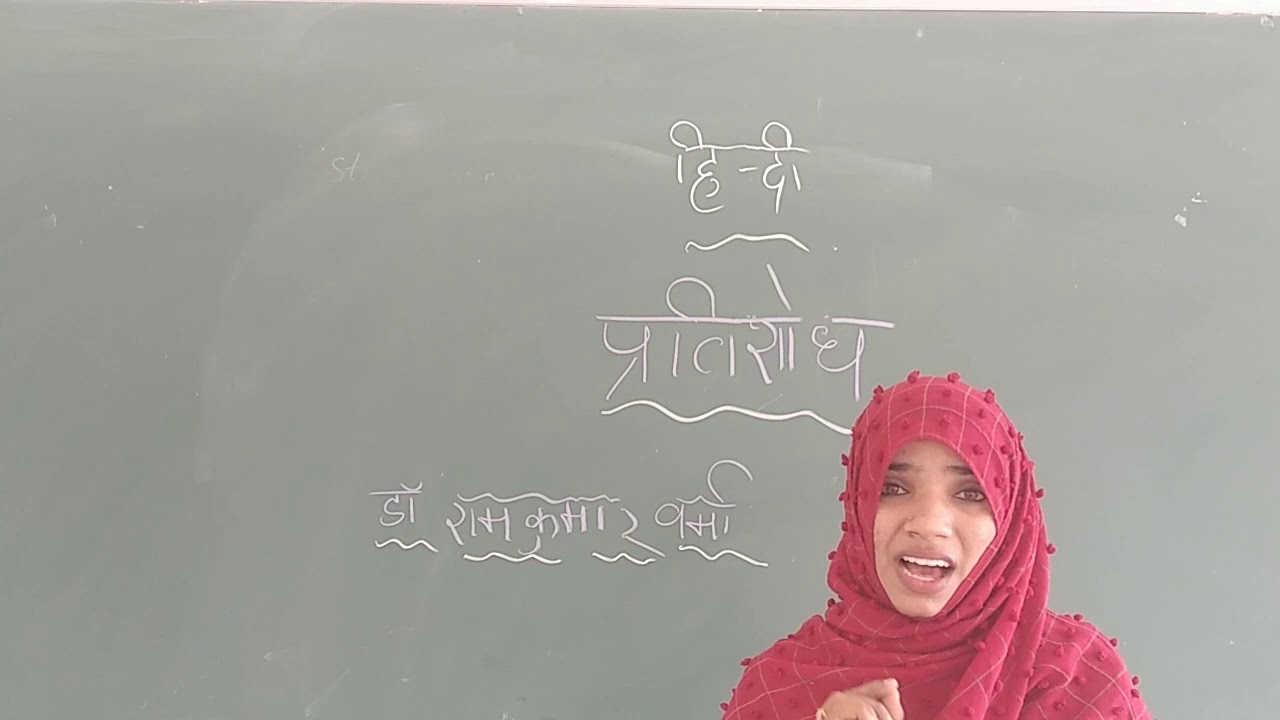 हिन्दी
प्रतिशोध
डॉ रामकुमार वर्मा